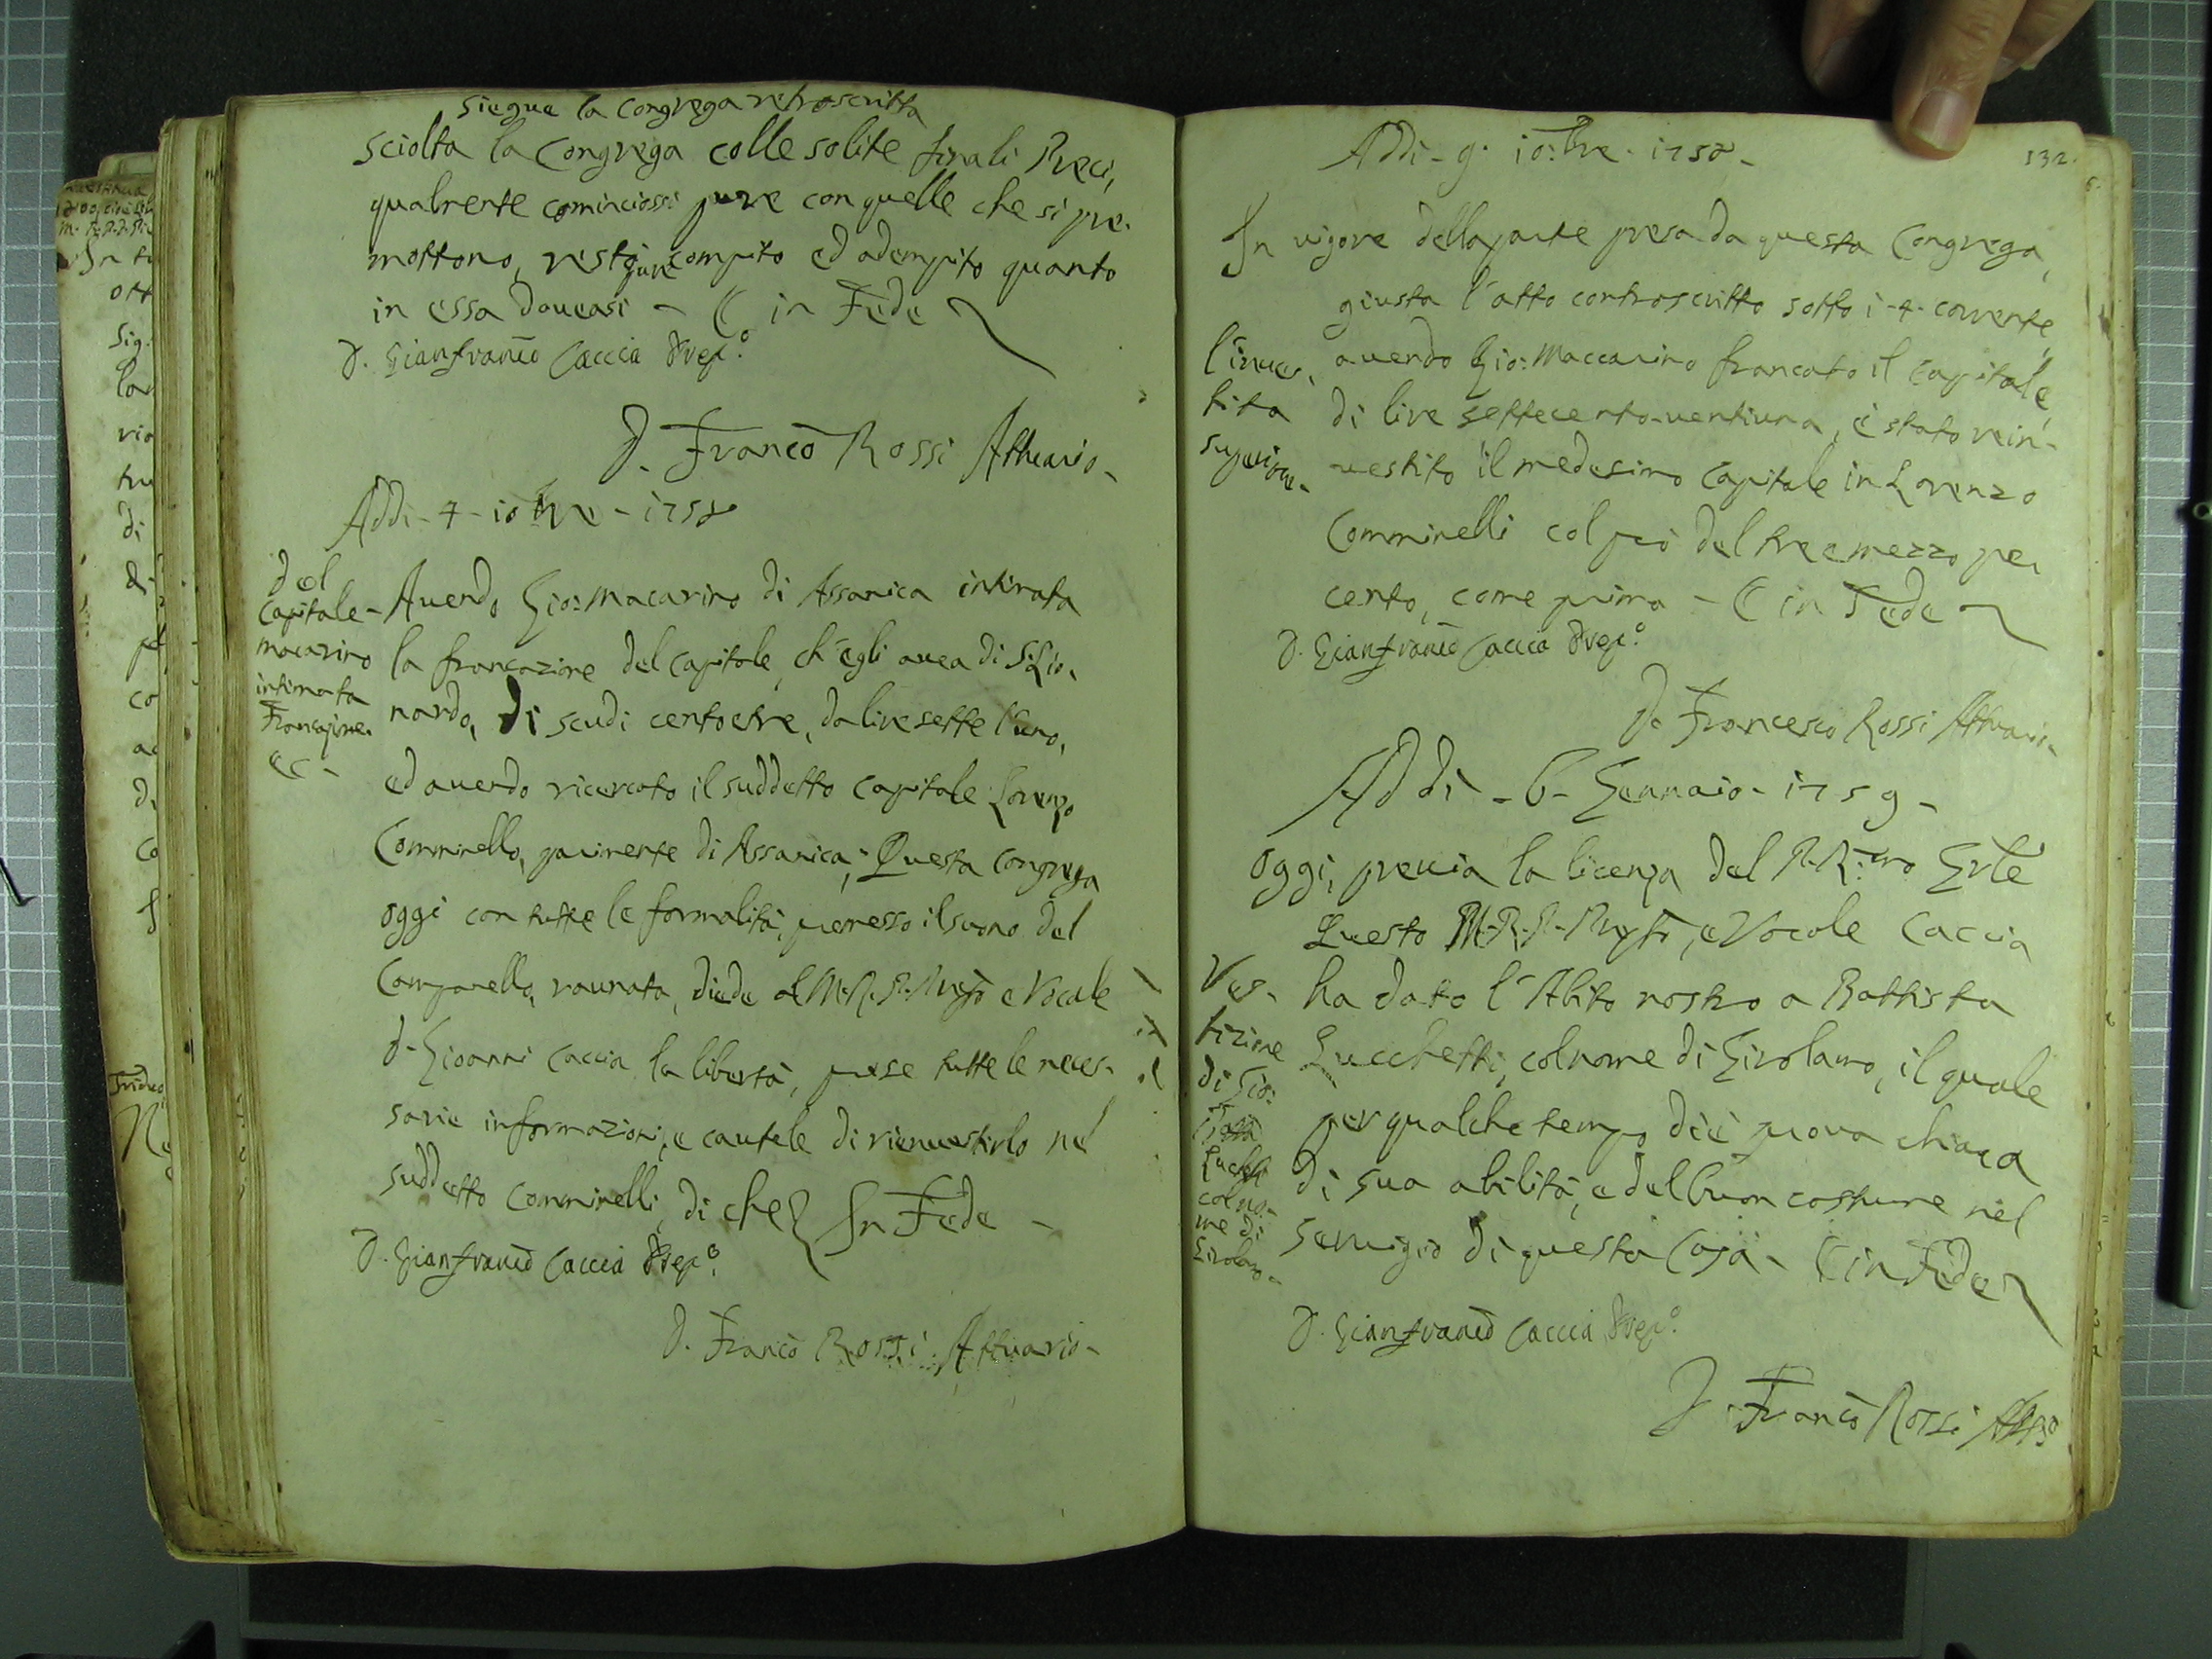 siegue la Congrega retroscritta
sciolta la Congrega colle solite finali Preci,
qualmente cominciossi pure con quelle che si pre-
mottono, restò pure compito ed adempito quanto
in essa doueasi - (( in Fede
D. Gianfranco Caccia Prep.o
D. Franco Rossi Attuario-
Addi - 4 - 10bre - 1758
Del
Capitale-
Macarino
intimata
Francazione.
ec -
Auendo Gio: Macarino di Assanica intimata
la francazione del Capitale, ch'egli auea di S. Lio-
nardo, di scudi centoetre, da lire sette l'uno,
ed auendo ricercato il suddetto Capitale Lorenzo
Comminello, parimente di Assanica; Questa Congrega
oggi con tutte le formalità, premesso il suono del
Campanello, raunata, diede al M. R. P. Preposto e Vocale
D. Gioanni Caccia la libertà, prese tutte le neces-
sarie informazioni, e cautele di rienuestirlo nel
suddetto Comminelli, di che In Fede -
D. Gianfranco Caccia Prep.o
D. Franco Rossi Attuario-
132.
Addi - 9. 10:bre. 1758 -
In vigore della parte presa da questa Congrega,
giusta l'atto controscritto sotto i -4- corrente,
l'inues-
tita
superiore-
auendo Gio: Maccarino francato il Capitale
di lire settecento-uentiuna, è stato rein-
uestito il medesimo Capitale in Lorenzo
Comminelli col prò del tre e mezzo per
cento, come prima - (( in Fede
D. Gianfranco Caccia Prep.o
D. Francesco Rossi Attuario-
Addi - 6 - Gennaio - 1759 -
Oggi, preuia la licenza del P. R:mo Gnle
Questo M. R. P. Preposto, e Vocale Caccia
Ves-
tizione
di Gio:
Batta
Luchetti
col no-
me di
Girolamo-
ha dato l'Abito nostro a Battista
Lucchetti, col nome di Girolamo, il quale
per qualche tempo diè proua chiara
di sua abilità, e del buon costume nel
seruigio di questa Casa - (( in Fede
D. Gianfranco Caccia Prep.o
D. Franco Rossi Att.o